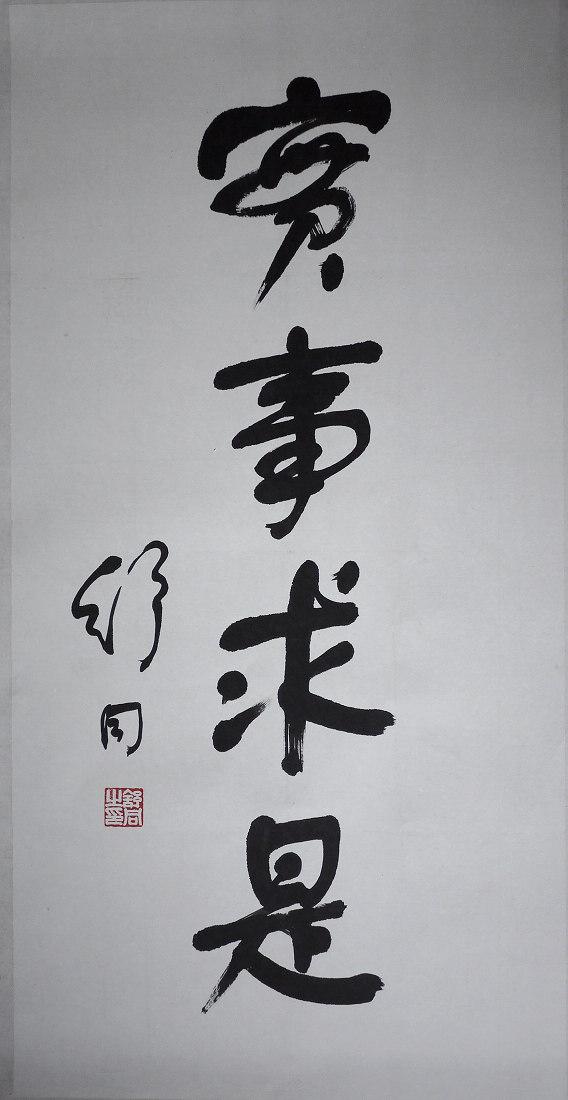 實事求是
舒同
舒同之印